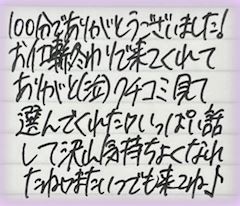 100分でありがとうございました!
お仕事終わりで来てくれて
ありがと(笑)クチコミ見て
選んでくれたりいっぱい話
して沢山気持ちよくなれ
たね♡またいつでも来てね♪